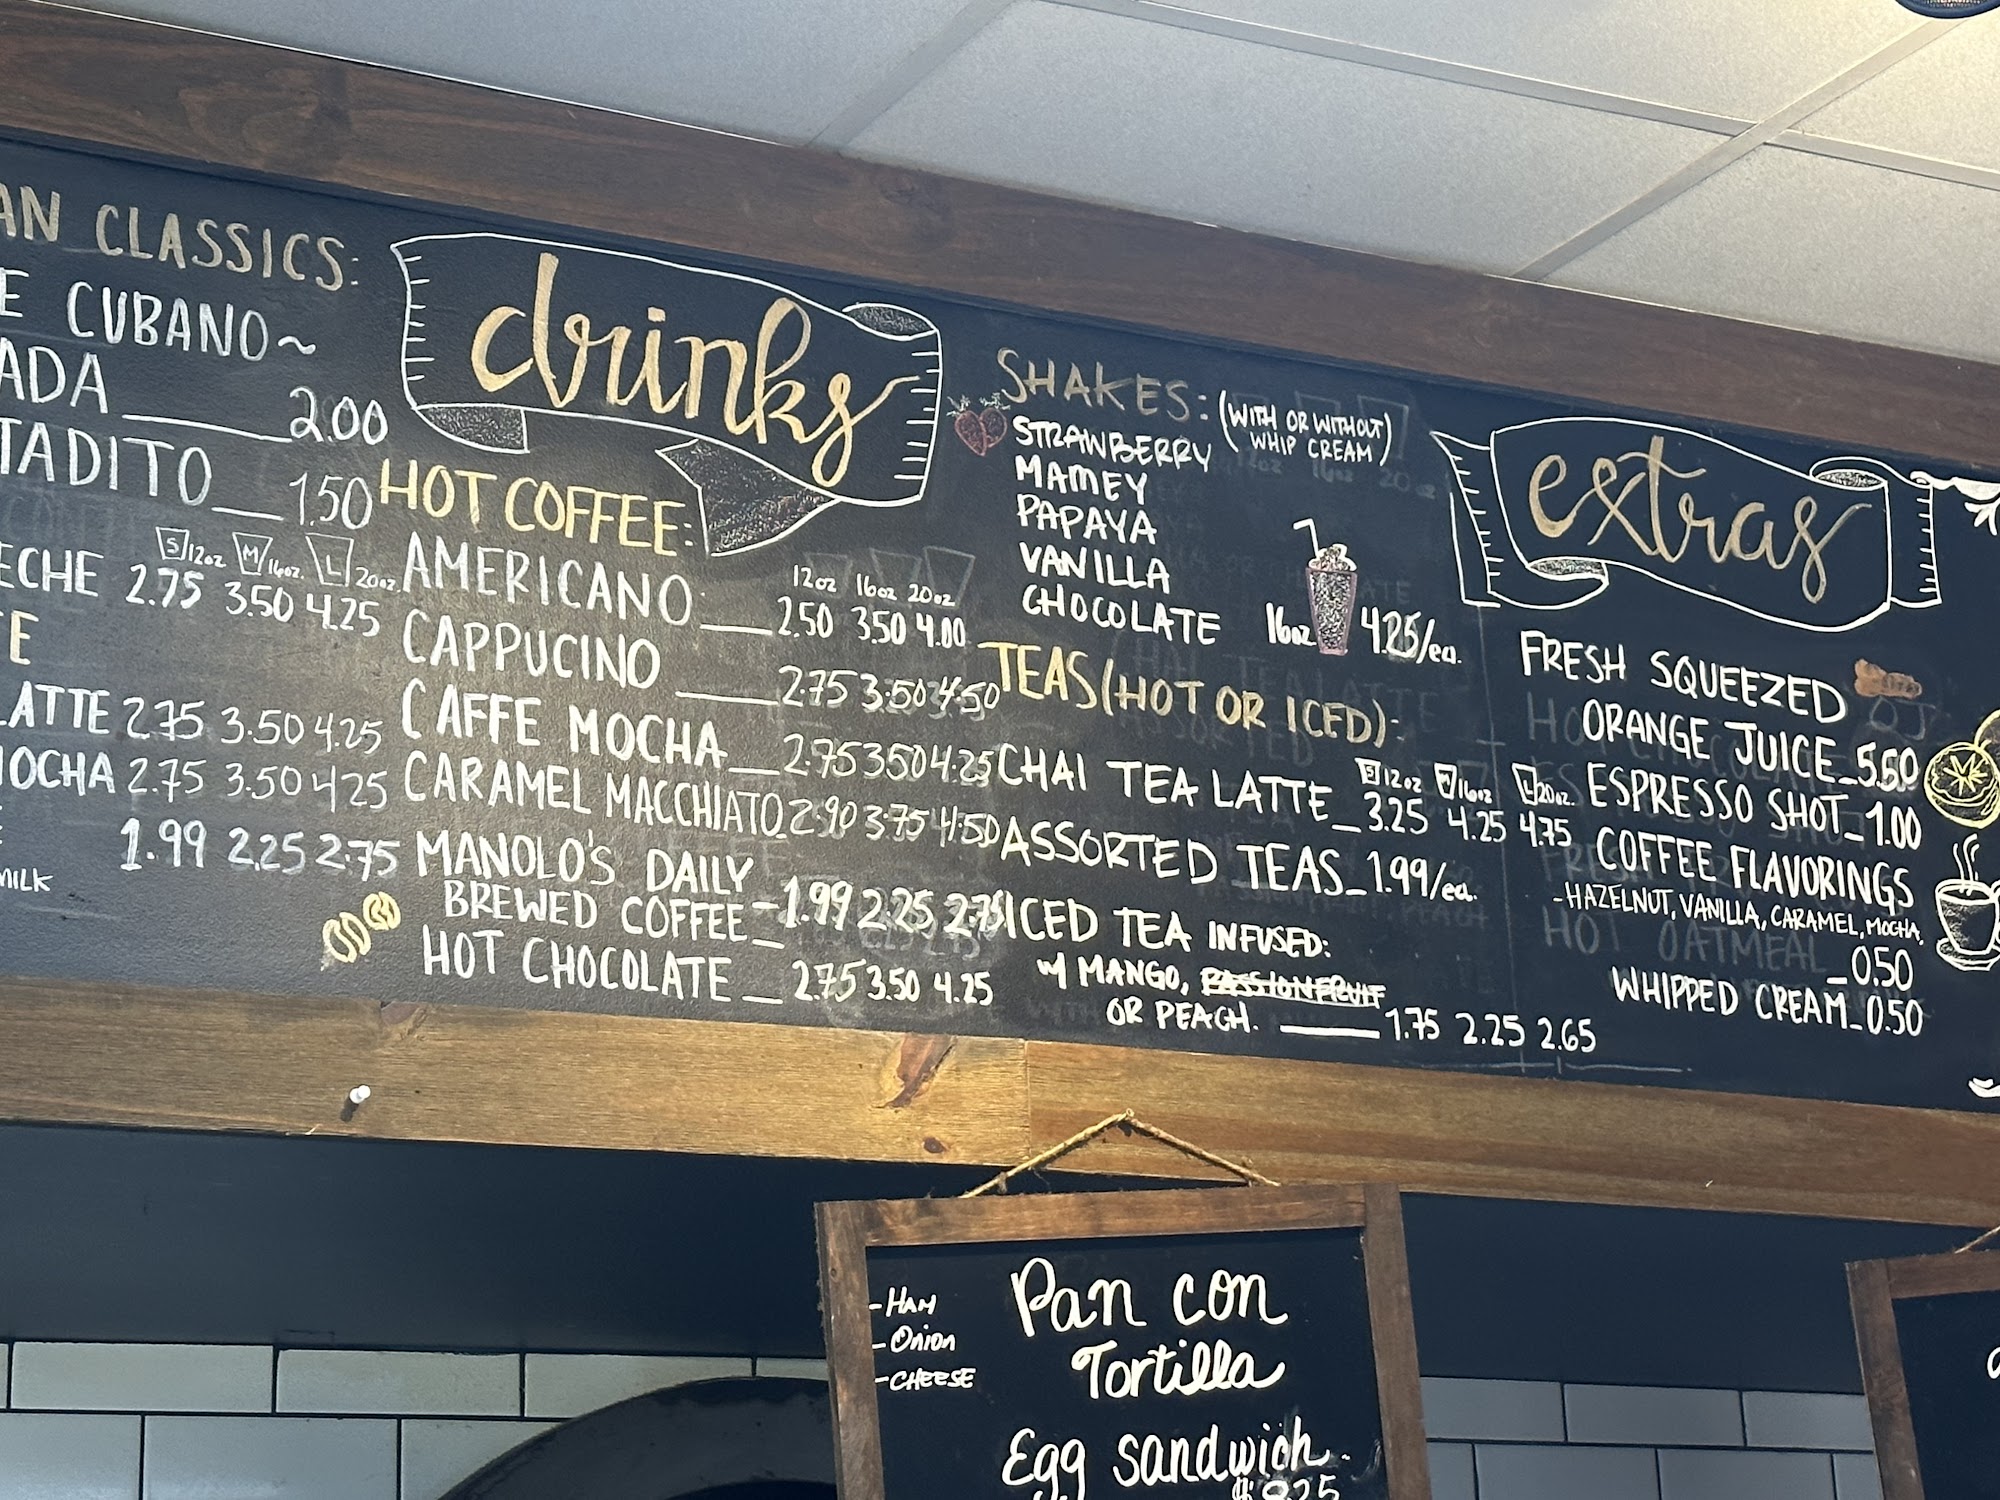 CLASSICS:
CUBANO~
2.00
1.50
S 12oz M 16oz. L 20oz.
2.75 3.50 4.25
LATTE 2.75 3.50 4.25
2.75 3.50 4.25
1.99 2.25 2.75
MILK
drinks
HOT COFFEE:
12oz 16oz 20oz
AMERICANO: 2.50 3.50 4.00
CAPPUCINO 2.75 3.50 4.50
CAFFE MOCHA 2.75 3.50 4.25
CARAMEL MACCHIATO 2.90 3.75 4.50
MANOLO'S DAILY
BREWED COFFEE 1.99 2.25 2.75
HOT CHOCOLATE 2.75 3.50 4.25
SHAKES: (WITH OR WITHOUT
WHIP CREAM)
STRAWBERRY
MAMEY
PAPAYA
VANILLA
CHOCOLATE 16oz 4.25/ea.
TEAS (HOT OR ICED):
S 12oz M 16oz L 20oz.
CHAI TEA LATTE 3.25 4.25 4.75
ASSORTED TEAS 1.99/ea.
ICED TEA INFUSED:
w/ MANGO, PASSIONFRUIT
OR PEACH. 1.75 2.25 2.65
extras
FRESH SQUEEZED
ORANGE JUICE 5.50
ESPRESSO SHOT 1.00
COFFEE FLAVORINGS
-HAZELNUT, VANILLA, CARAMEL, MOCHA,
0.50
WHIPPED CREAM 0.50
-HAM
-Onion
-CHEESE
Pan con
Tortilla
Egg sandwich